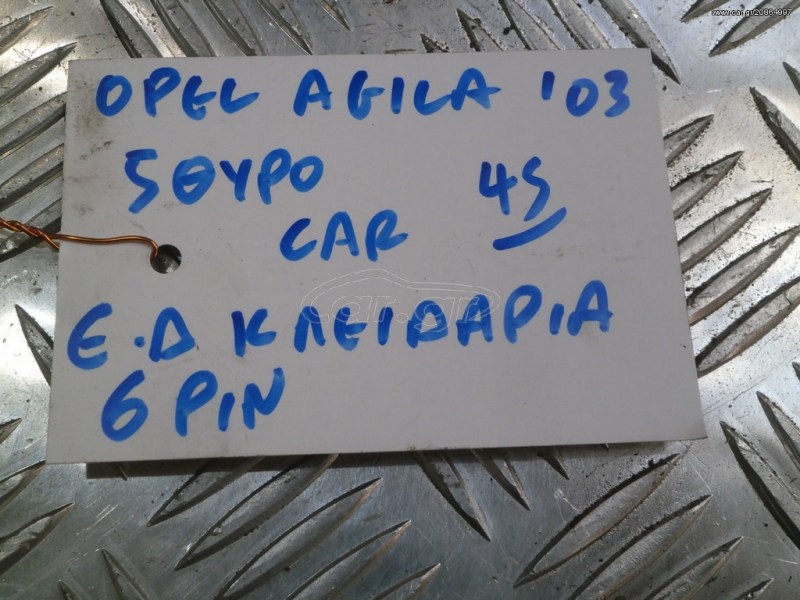 www.car.gr/20864997
OPEL AGILA '03
5ΘΥΡΟ 45
CAR
car.gr
Ε.Δ ΚΛΕΙΔΑΡΙΑ
6 PIN